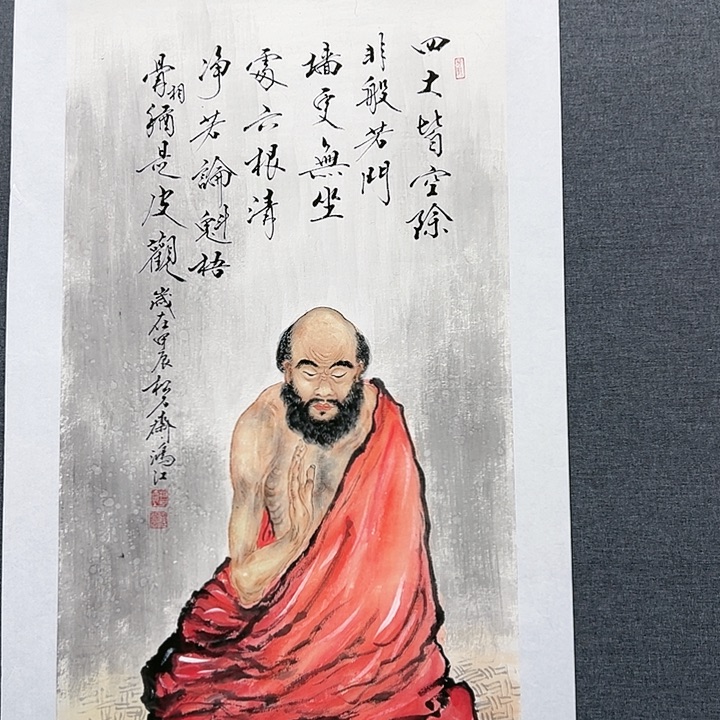 四大皆空除
非般若門
墻更無坐
處六根清
净若論魁梧
骨相是皮觀歲在甲辰松石齋鴻江